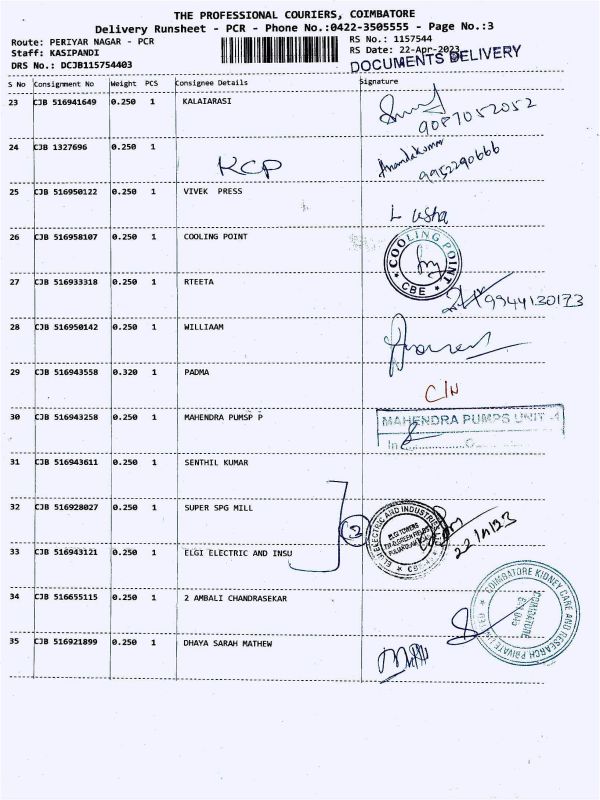 THE PROFESSIONAL COURIERS, COIMBATORE
Delivery Runsheet - PCR - Phone No.:0422-3505555 - Page No.:3
Route: PERIYAR NAGAR - PCR
RS No.: 1157544
Staff: KASIPANDI
RS Date: 22-Apr-2023
DRS No.: DCJB115754403
DOCUMENTS DELIVERY
S No Consignment No Weight PCS Consignee Details Signature
23 CJB 516941649 0.250 1 KALAIARASI
9087052052
24 CJB 1327696 0.250 1
KCP
Anandakumar
9952290666
25 CJB 516950122 0.250 1 VIVEK PRESS
L Usha
26 CJB 516958107 0.250 1 COOLING POINT
COOLING POINT
* CBE *
27 CJB 516933318 0.250 1 RTEETA
9944130173
28 CJB 516950142 0.250 1 WILLIAAM
29 CJB 516943558 0.320 1 PADMA
C/N
30 CJB 516943258 0.250 1 MAHENDRA PUMSP P
MAHENDRA PUMPS UNIT -4
In
31 CJB 516943611 0.250 1 SENTHIL KUMAR
32 CJB 516928027 0.250 1 SUPER SPG MILL
ELGI ELECTRIC AND INDUSTRIES
ELGI TOWERS
33 CJB 516943121 0.250 1 ELGI ELECTRIC AND INSU
34 CJB 516655115 0.250 1 2 AMBALI CHANDRASEKAR
COIMBATORE KIDNEY CARE AND RESEARCH PRIVATE LIMITED
COIMBATORE
35 CJB 516921899 0.250 1 DHAYA SARAH MATHEW